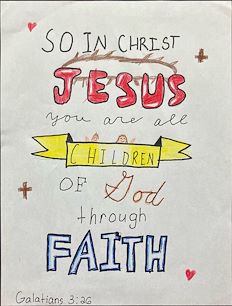 SO, IN CHRIST
JESUS
you are all
CHILDREN
OF God
through
FAITH
Galatians 3:26